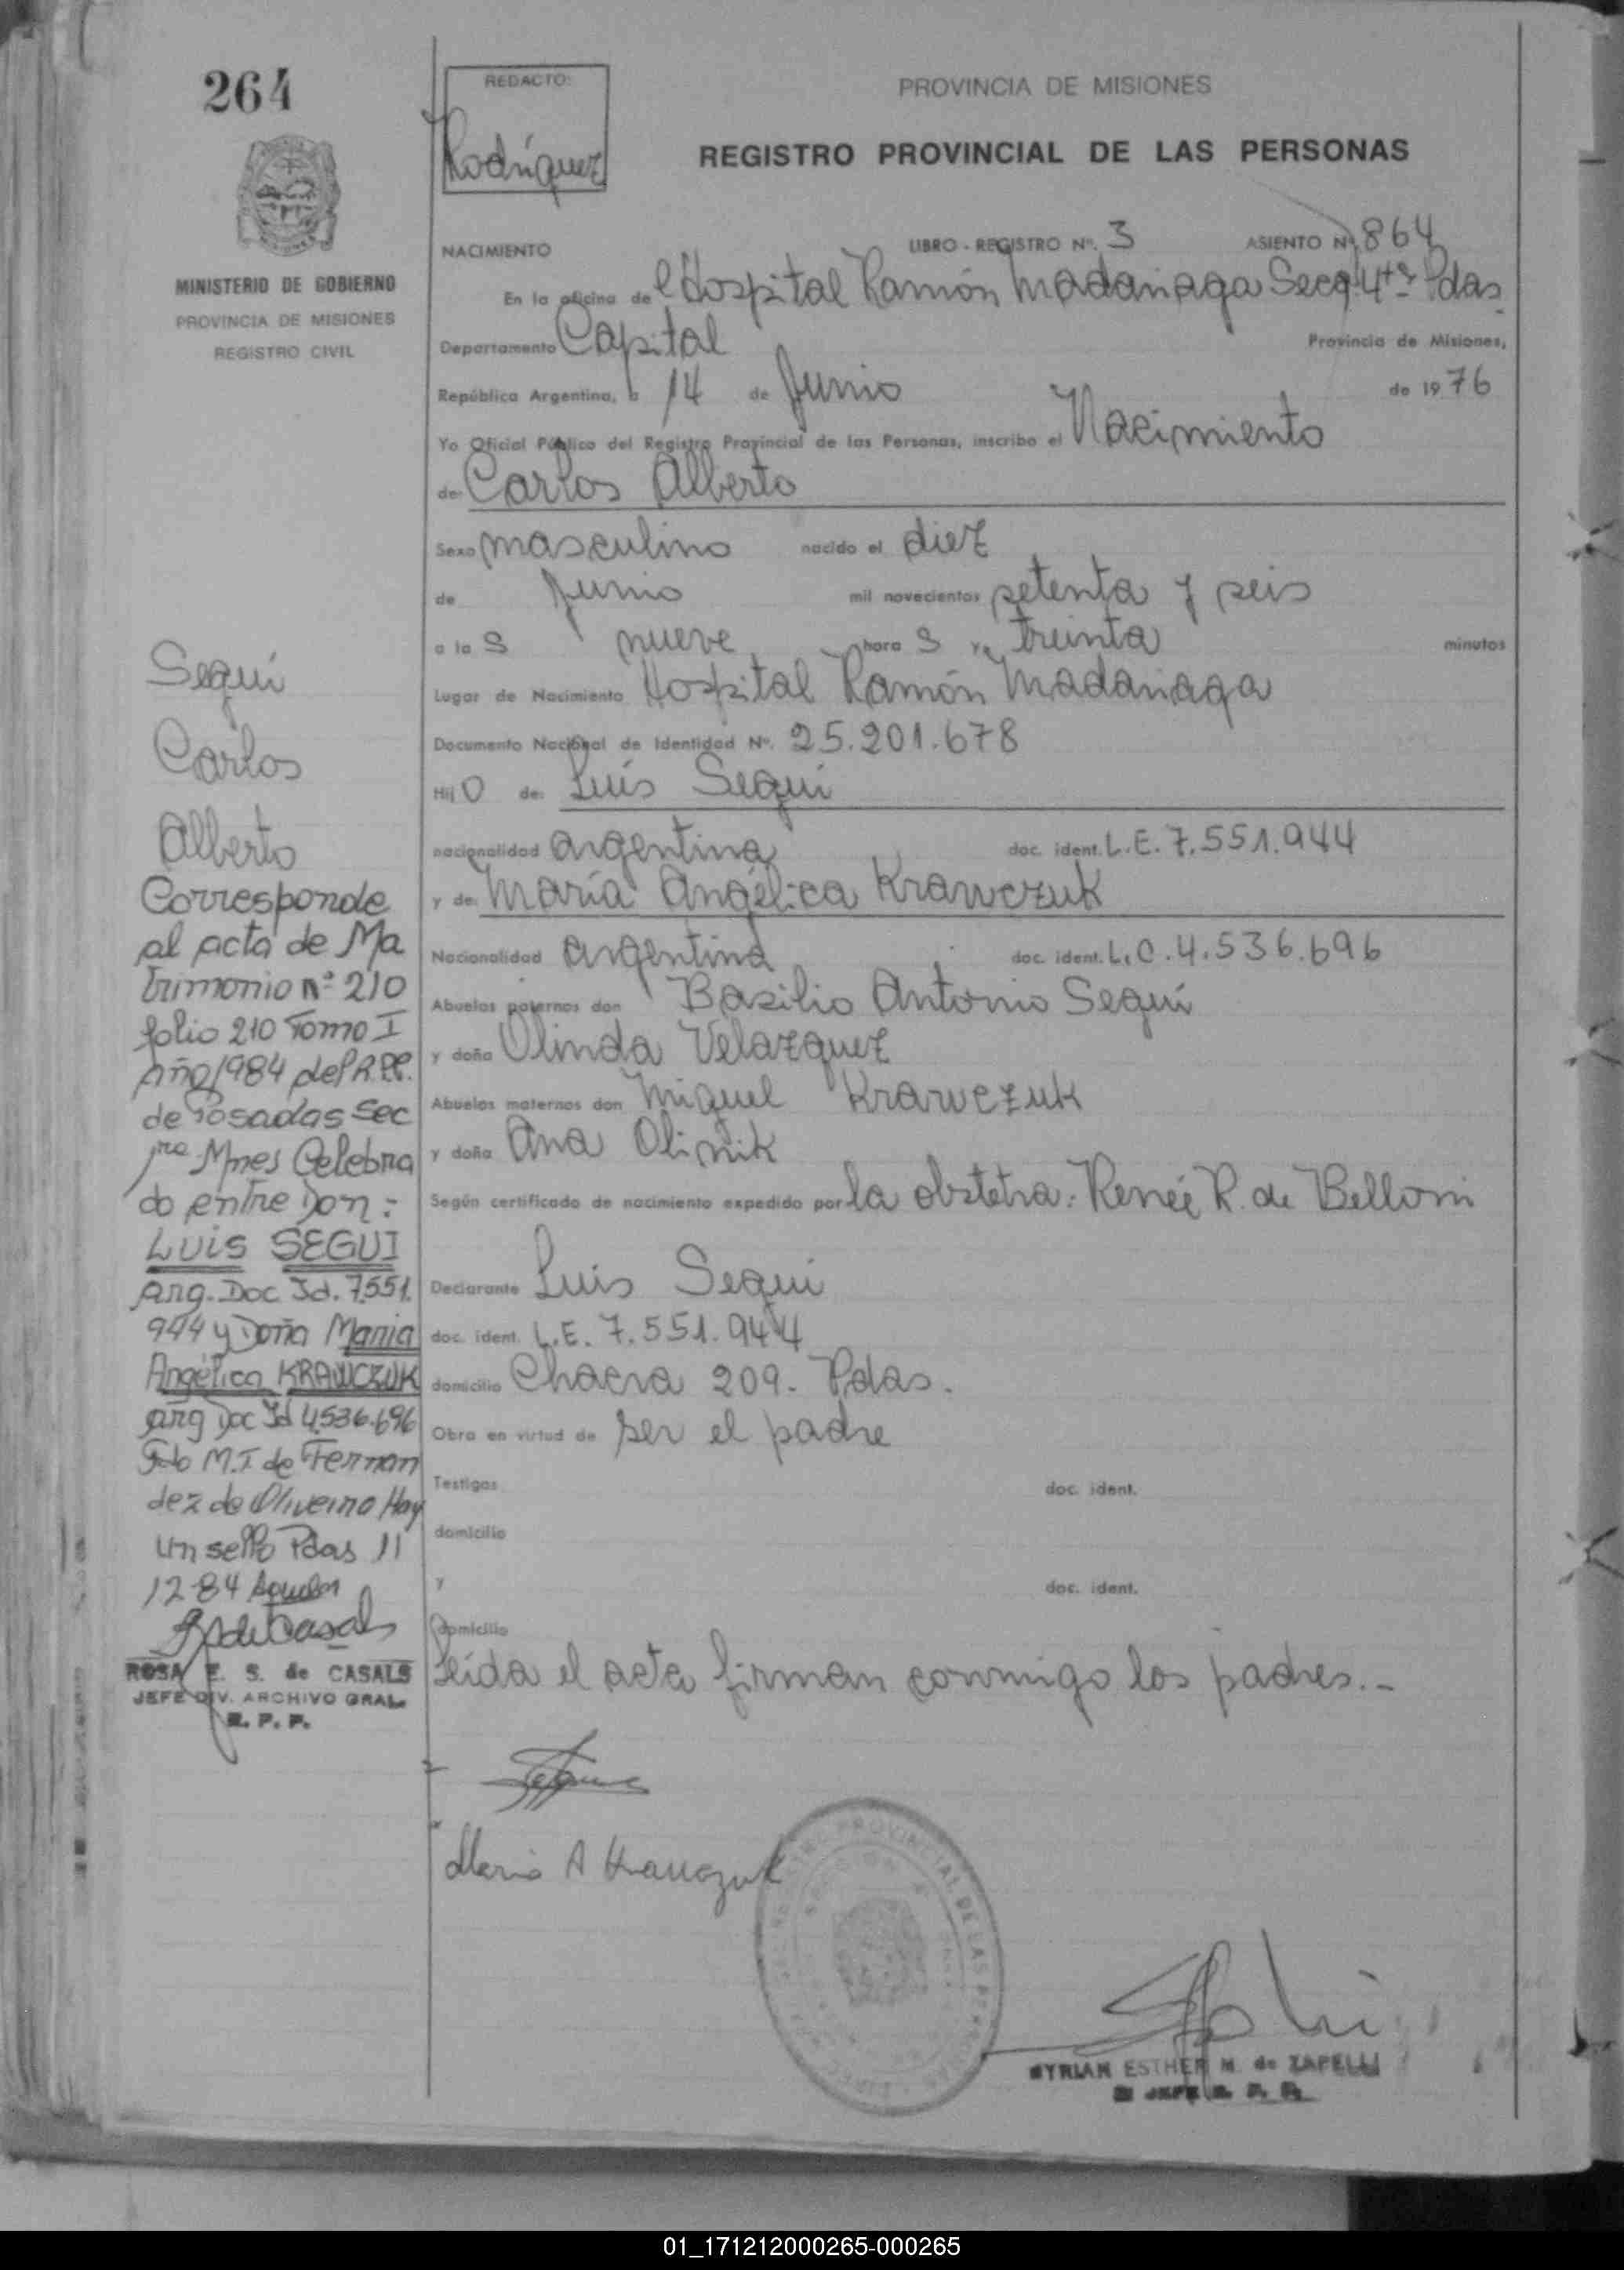 264
MINISTERIO DE GOBIERNO
PROVINCIA DE MISIONES
REGISTRO CIVIL
Seguí
Carlos
Alberto
Corresponde
al acta de Ma
trimonio nº 210
folio 210 Tomo I
Año 1984 del R.P.P.
de Posadas Sec
1ra Mnes Celebra
do entre Don:
LUIS SEGUI
Arg. Doc Id. 7551.
944 y Doña Maria
Angélica KRAWCZUK
Arg Doc Id 4536.696
Fdo M.I de Fernan
dez de Oliveira Hay
un sello Pdas 11
12-84
ROSA E. S. de CASALS
JEFE DIV. ARCHIVO GRAL.
R. P. P.
REDACTO:
Rodríguez
PROVINCIA DE MISIONES
REGISTRO PROVINCIAL DE LAS PERSONAS
NACIMIENTO LIBRO - REGISTRO Nº. 3 ASIENTO Nº 864
En la oficina del Hospital Ramón Madariaga Secc. 4ta Pdas.
Departamento Capital Provincia de Misiones,
República Argentina, a 14 de Junio de 1976
Yo Oficial Público del Registro Provincial de las Personas, inscribo el Nacimiento
de: Carlos Alberto
Sexo masculino nacido el diez
de Junio mil novecientos setenta y seis
a la S nueve hora S y treinta minutos
Lugar de Nacimiento Hospital Ramón Madariaga
Documento Nacional de Identidad Nº. 25.201.678
Hij O de: Luís Seguí
nacionalidad argentina doc. ident. L.E. 7.551.944
y de: María Angélica Krawczuk
Nacionalidad argentina doc. ident. L.C. 4.536.696
Abuelos paternos don Basilio Antonio Seguí
y doña Olinda Velazquez
Abuelos maternos don Miguel Krawczuk
y doña Ana Olinik
Según certificado de nacimiento expedido por la obstetra: Renée R. de Belloni
Declarante Luis Segui
doc. ident. L.E. 7.551.944
domicilio Chacra 209. Pdas.
Obra en virtud de ser el padre
Testigos doc. ident.
domicilio
y doc. ident.
domicilio
Leída el acta firman conmigo los padres.-
Maria A Krawczuk
REGISTRO PROVINCIAL DE LAS PERSONAS
MYRIAN ESTHER M. de ZAPELLI
JEFE R. P. P.
01_171212000265-000265